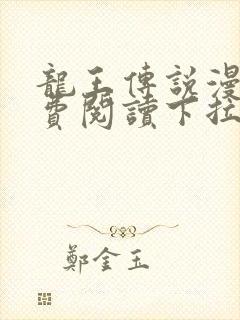 龍王傳說漫
費閱讀下拉
鄭金玉